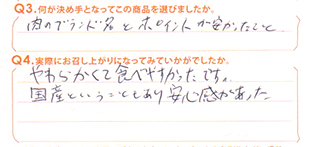 Q3.何が決め手となってこの商品を選びましたか。
肉のブランド名とポイントが安かったこと
Q4.実際にお召し上がりになってみていかがでしたか。
やわらかくて食べやすかったです。
国産ということもあり安心感があった